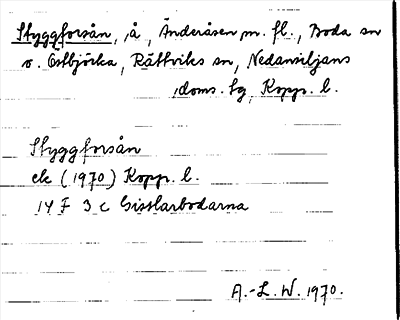 Styggforsån, å, Änderåsen m. fl., Boda sn
o. Östbjörka, Rättviks sn, Nedansiljans
doms. tg, Kopp. l.
Styggforsån
ek (1970) Kopp. l.
14 F 3 c Gisslarbodarna
A.-L. W. 1970.